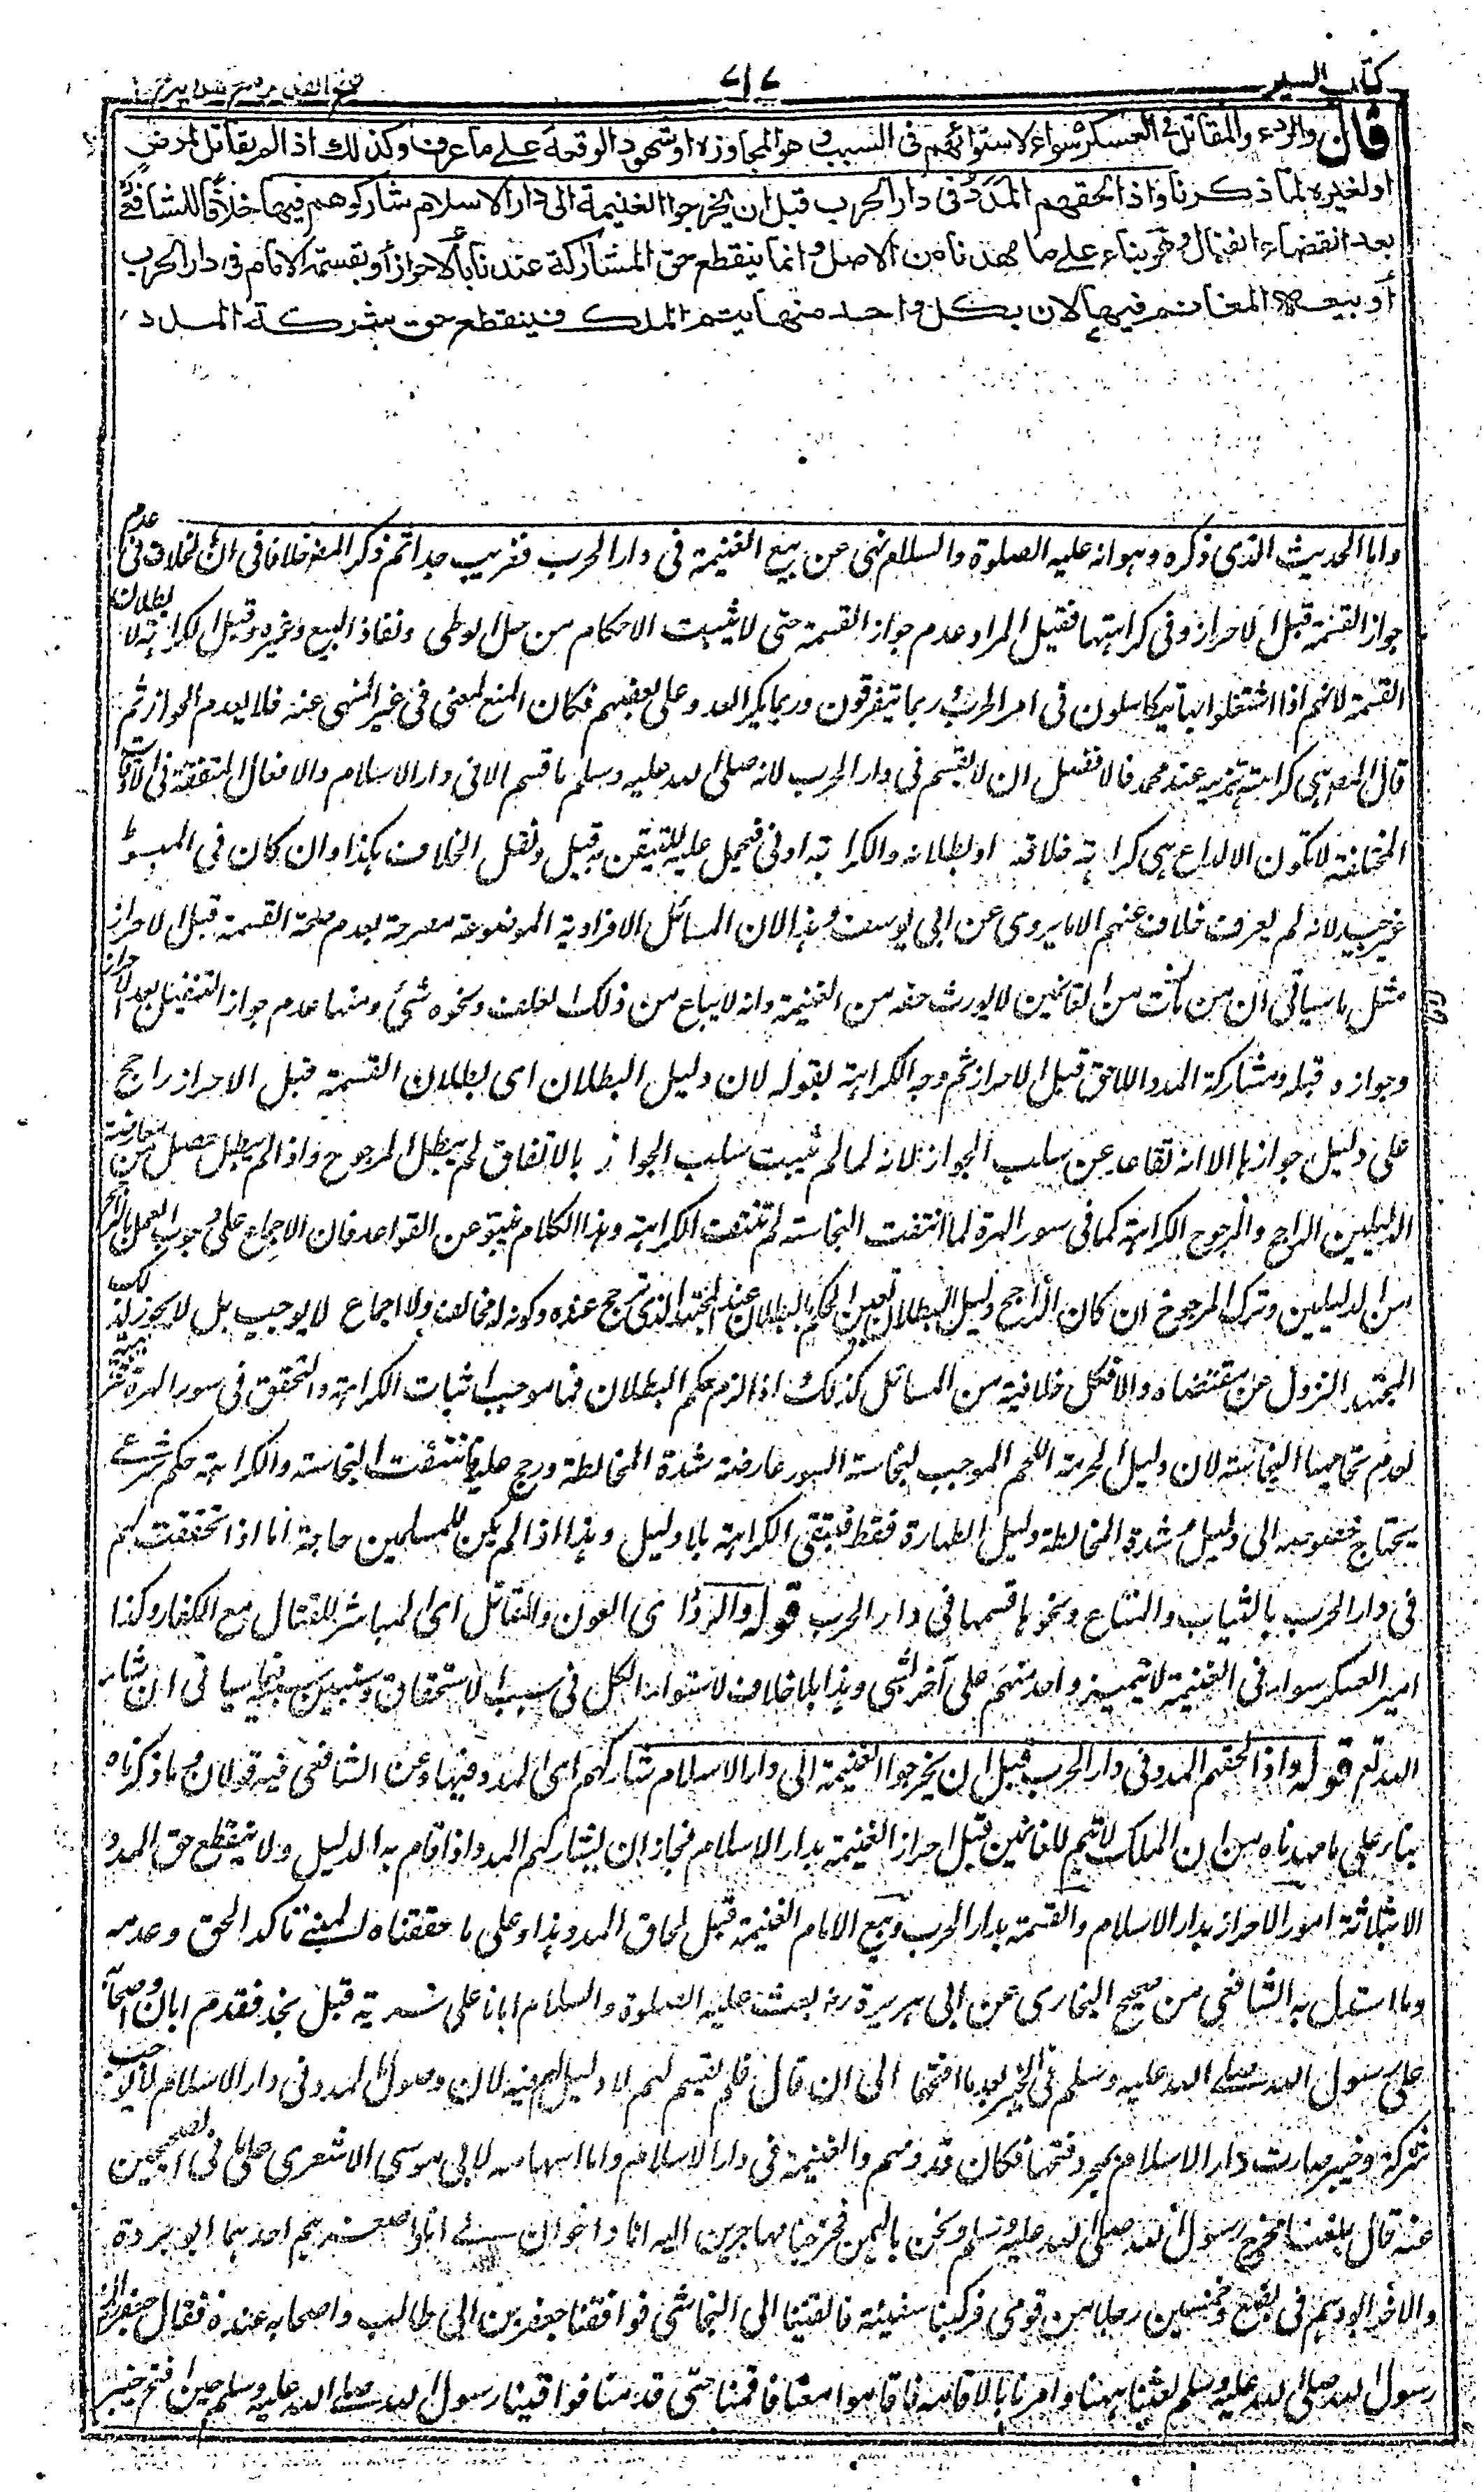 كتاب السير
٧١٧
فتح القدير مع هداية
قال والردء والمقاتل في العسكر سواء لاستوائهم في السبب وهو المجاوزة او شهود الوقعة على ما عرف وكذلك اذا لم يقاتل لمرض
او لغيره لما ذكرنا واذا لحقهم المدد في دار الحرب قبل ان يخرجوا الغنيمة الى دار الاسلام شاركوهم فيها خلافا للشافعي
بعد انقضاء القتال وهو بناء على ما مهدناه من الاصل وانما ينقطع حق المشاركة عندنا بالاحراز أو بقسمة الامام في دار الحرب
أو ببيعه المغانم فيها لان بكل واحد منها يتم الملك فينقطع حق شركة المدد
واما الحديث الذى ذكره وهو انه عليه الصلوة والسلام نهى عن بيع الغنيمة فى دار الحرب فغريب جدا ثم ذكر المصنف خلافا فى ان الخلاف فى عدم
جواز القسمة قبل الاحراز وفى كراهتها فقيل المراد عدم جواز القسمة حتى لا تثبت الاحكام من حل الوطى ونفاذ البيع وغيره وقيل الكراهة لا بطلان
القسمة لانهم اذا اشتغلوا بها يتكاسلون فى امر الحرب وربما يتفرقون وربما يكر العدو على بعضهم فكان المنع لمعنى فى غير المنهى عنه فلا يعدم الجواز ثم
قال المصنف هى كراهة تنزيه عند محمد فالافضل ان لا يقسم فى دار الحرب لانه صلى الله عليه وسلم ما قسم الا فى دار الاسلام والافعال المتفقة فى الاوقات
المختلفة لا تكون الا لداع هى كراهة خلافه او بطلانه والكراهة ادنى فيحمل عليه للتيقن به قيل ونقل الخلاف هكذا وان كان فى المبسوط
غير جيد لانه لم يعرف خلاف عنهم الا ما يروى عن ابى يوسف وهذا لان المسائل الافرادية الموضوعة مصرحة بعدم صحة القسمة قبل الاحراز
مثل ما سياتى ان من مات من الغانمين لا يورث حقه من الغنيمة وانه لا يباع من ذلك العلف ونحوه شئ ومنها عدم جواز التنفيل بعد الاحراز
وجوازه قبله ومشاركة المدد اللاحق قبل الاحراز ثم وجه الكراهة بقوله لان دليل البطلان اى بطلان القسمة قبل الاحراز راجح
على دليل جوازها الا انه تقاعد عن سلب الجواز لانه لما لم يثبت سلب الجواز بالاتفاق لم يبطل المرجوح واذا لم يبطل حصل من معارضة
الدليلين الراجح والمرجوح الكراهة كما فى سور الهرة لما انتفت النجاسة لم تنتف الكراهة وهذا الكلام ينبو عن القواعد فان الاجماع على وجوب العمل بالراجح
من الدليلين وترك المرجوح ان كان الراجح دليل البطلان تعين الحكم بالبطلان عند المجتهد الذى ترجح عنده وكونه له مخالف ولا اجماع لا يوجب بل لا يجوز لذلك
المجتهد النزول عن مقتضاه والا فكل خلافية من المسائل كذلك اذا لزم حكم البطلان فما موجب اثبات الكراهة والتحقق فى سور الهرة تنزيهية
لعدم تحاميها النجاسة لان دليل حرمة اللحم الموجب لنجاسة السور عارضه شدة المخالطة ورجح عليه فانتفت النجاسة والكراهة حكم شرعى
يحتاج خصوصه الى دليل شدة المخالطة دليل الطهارة فقط فتبقى الكراهة بلا دليل وهذا اذا لم يكن للمسلمين حاجة اما اذا تحققت لهم
فى دار الحرب بالثياب والمتاع ونحوها قسمها فى دار الحرب قوله والردء اى العون والمقاتل اى المباشر للقتال مع الكفار وكذا
امير العسكر سواء فى الغنيمة لا يتميز واحد منهم على آخر بشئ وهذا بلا خلاف لاستواء الكل فى سبب الاستحقاق وسنبين سببه فيما سياتى ان شاء
الله تعالى قوله واذا لحقهم المدد فى دار الحرب قبل ان يخرجوا الغنيمة الى دار الاسلام شاركهم اى المدد فيها وعن الشافعى فيه قولان وما ذكرناه
بناء على ما مهدناه من ان الملك لا يتم للغانمين قبل احراز الغنيمة بدار الاسلام فجاز ان يشاركهم المدد اذا قام به الدليل ولا ينقطع حق المدد
الا بثلاثة امور الاحراز بدار الاسلام والقسمة بدار الحرب وبيع الامام الغنيمة قبل لحاق المدد وهذا وعلى ما حققناه المبنى تاكد الحق وعدمه
وما استدل به الشافعى من صحيح البخارى عن ابى هريرة رض بعث عليه الصلوة والسلام ابانا على سرية قبل نجد فقدم ابان واصحابه
على رسول الله صلى الله عليه وسلم فى الخيبر بعد ما افتتحها الى ان قال فلم يقسم لهم لا دليل لهم فيه لان وصول المدد فى دار الاسلام لا يوجب
شركة وخيبر صارت دار الاسلام بمجرد فتحها فكان قدومهم والغنيمة فى دار الاسلام واما اسهامه لابى موسى الاشعرى على ما فى الصحيحين
عنه قال بلغنا مخرج رسول الله صلى الله عليه وسلم ونحن باليمن فخرجنا مهاجرين اليه انا واخوان لى انا اصغرهم احدهما ابو بردة
والآخر ابو رهم فى بضع وخمسين رجلا من قومى فركبنا سفينة فالقتنا الى النجاشى فوافقنا جعفر بن ابى طالب واصحابه عنده فقال جعفر ان
رسول الله صلى الله عليه وسلم بعثنا ههنا وامرنا بالاقامة فاقيموا معنا فاقمنا حتى قدمنا فوافينا رسول الله صلى الله عليه وسلم حين فتح خيبر